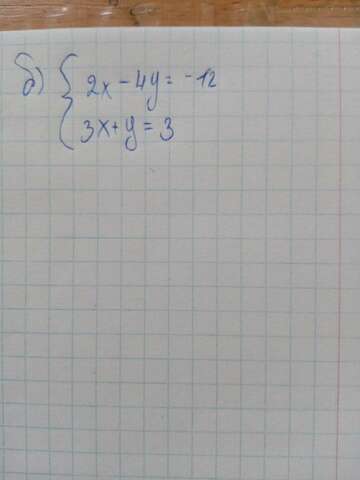 б) { 2x - 4y = -12
3x + y = 3